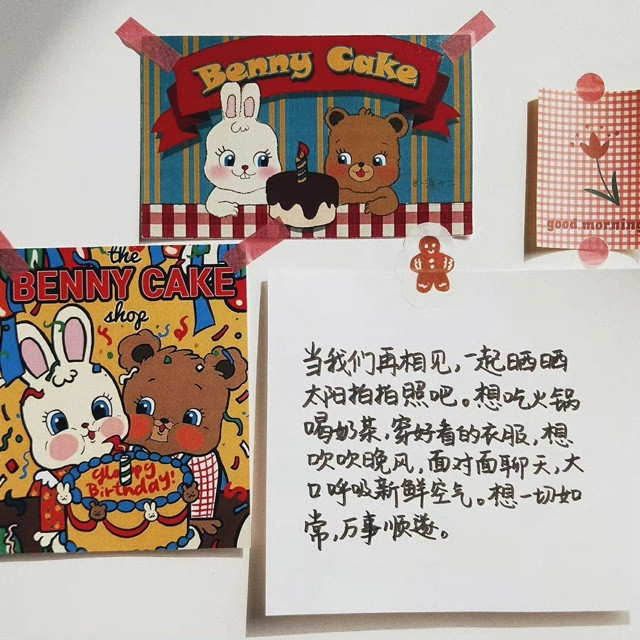 Benny Cake
good morning
the
BENNY CAKE
shop
Happy
Birthday!
当我们再相见,一起晒晒
太阳拍拍照吧。想吃火锅
喝奶茶,穿好看的衣服,想
吹吹晚风,面对面聊天,大
口呼吸新鲜空气。想一切如
常,万事顺遂。